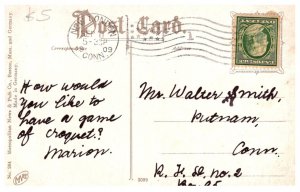 65
Post Card
CONN.
09
Correspondence
Address
1
How would
you like to
have a game
of croquet?
Marion.
Mr. Walter Smith,
Putnam,
Conn.
R. F. D. no. 2
Box 25
Metropolitan News & Pub. Co., Boston, Mass. and Germany
Made in Germany.